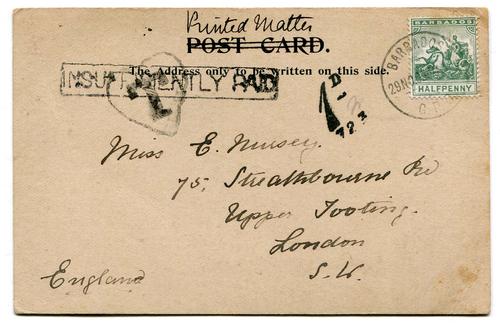 Printed Matter
POST CARD.
The Address only to be written on this side.
INSUFFICIENTLY PAID
T
BARBADOS
HALFPENNY
BARBADOS
29 NO
G
Miss E. Nursey.
75, Streathbourne Rd
Upper Tooting.
London
S.W.
England